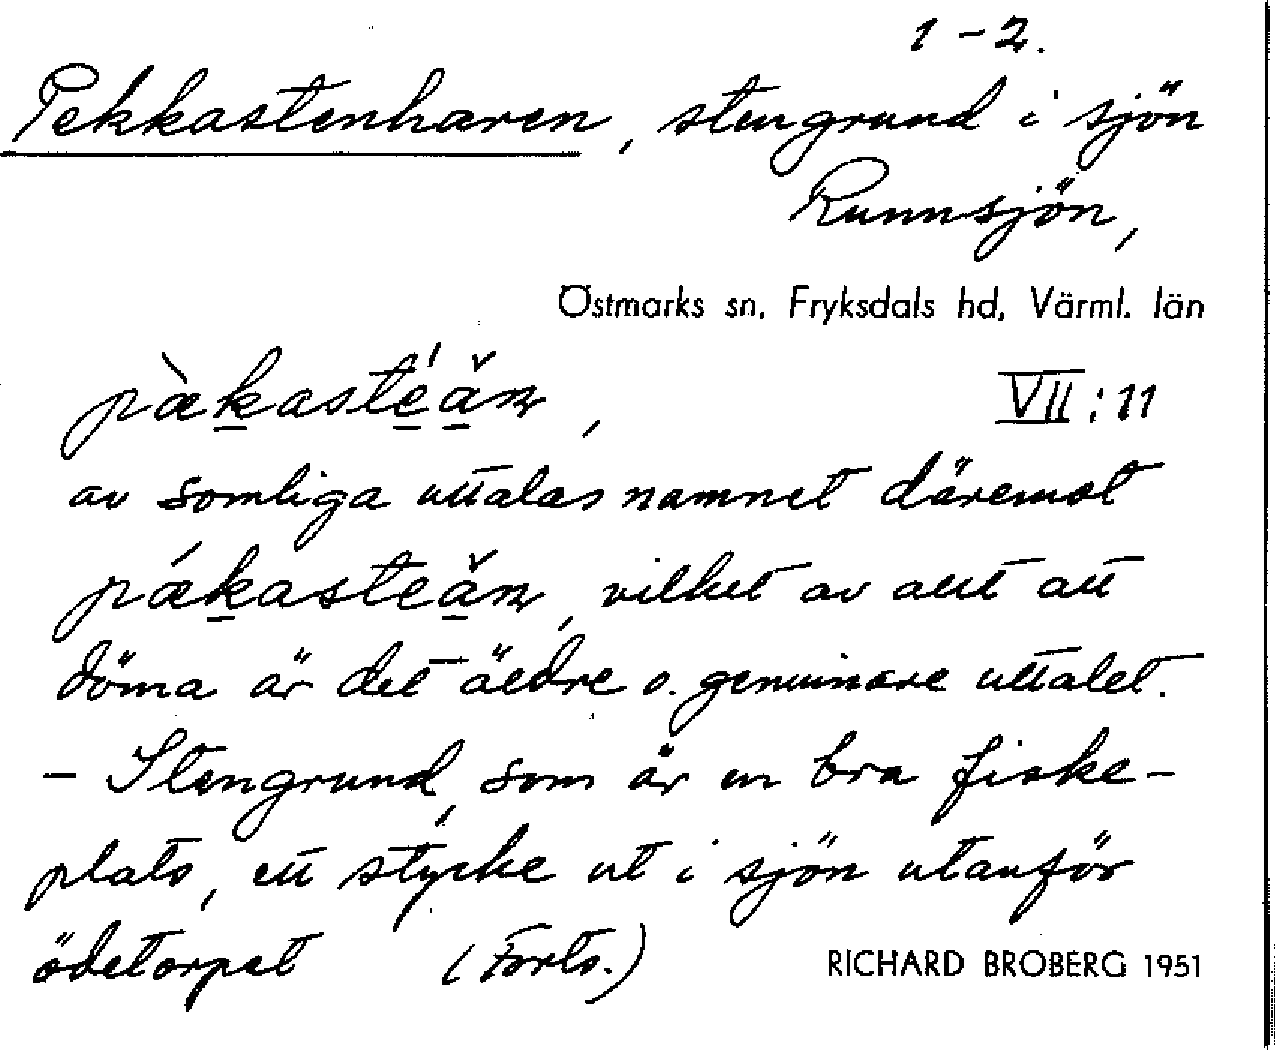 1-2.
Pekkastenharen, stengrund i sjön
Runnsjön,
Östmarks sn, Fryksdals hd, Värml. län
pæ̀kasté'ǎn,
VII:11
av somliga uttalas namnet däremot
pǽkasteǎn, vilket av allt att
döma är det äldre o. genuinare uttalet.
- Stengrund, som är en bra fiske-
plats, ett stycke ut i sjön utanför
ödetorpet (Forts.)
RICHARD BROBERG 1951